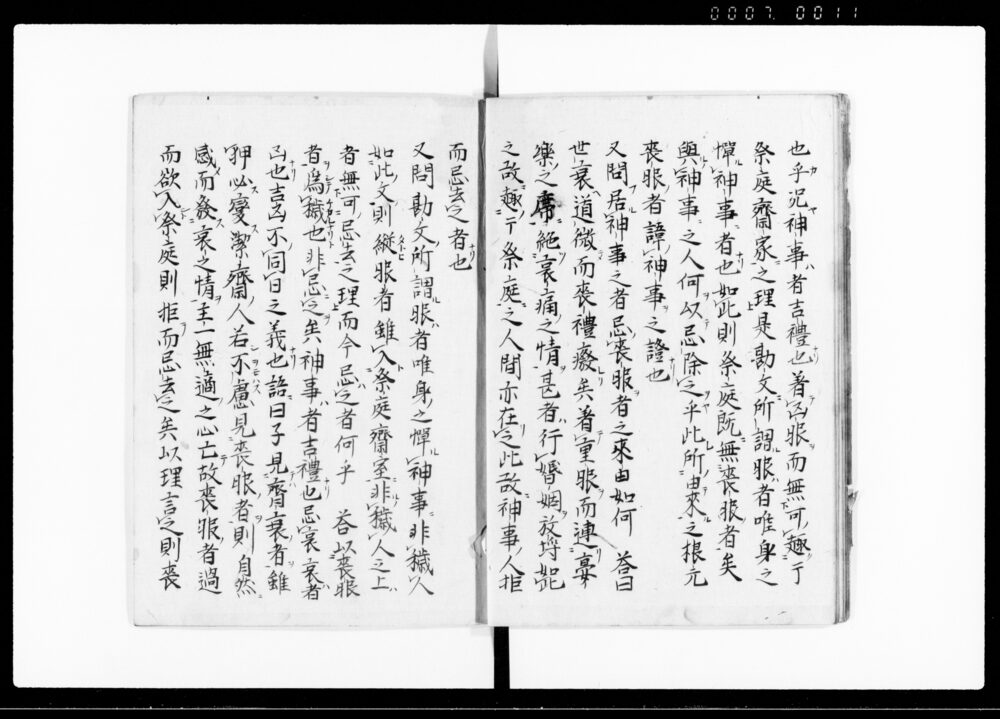 0007.0011
也乎況神事者吉禮也著凶服而無可趣于
祭庭齋家之理是勘文所謂服者唯身之
憚神事者也如此則祭庭既無喪服者矣
與神事之人何以忌除之乎此所由來之根元
喪服者諱神事之證也
又問居神事之者忌喪服者之來由如何 答曰
世衰道微而喪禮癈矣著重服而連宴
樂之席絶哀痛之情甚者行婚姻放
之故趣于祭庭之人間亦在之此故神事人拒
而忌去之者也
又問勘文所謂服者唯身之憚神事非穢人
如此文則縱服者雖入祭庭齋室非穢人之上
者無可忌去之理而今忌之者何乎 答以喪服
者爲穢也非忌之矣神事者吉禮也忌哀衰者
凶也吉凶不同日之義也語曰子見齊衰者雖
狎必變潔齋人若不慮見喪服者則自然
感而發哀之情主一無適之心亡故喪服者過
而欲入祭庭則拒而忌去之矣以理言之則喪